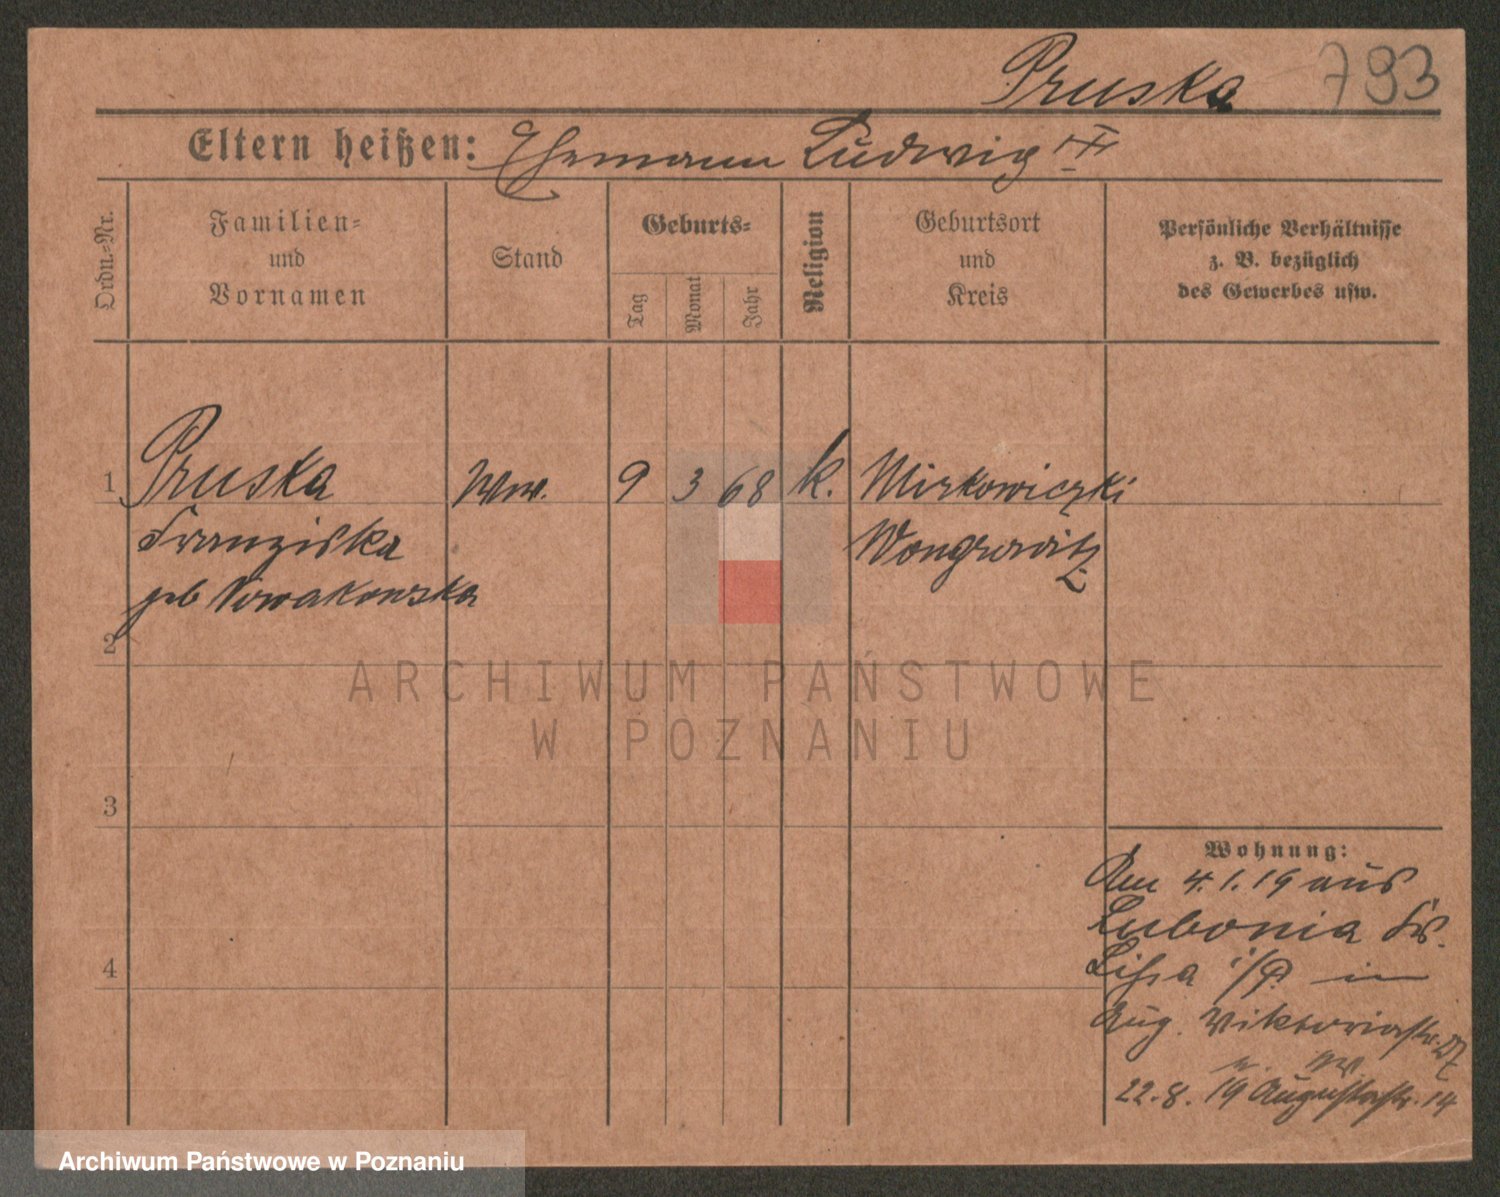 Pruska 793
Eltern heißen: Ehemann Ludwig
Ordn.-Nr.
Familien-
und
Vornamen
Stand
Geburts-
Tag
Monat
Jahr
Religion
Geburtsort
und
Kreis
Persönliche Verhältnisse
z. B. bezüglich
des Gewerbes usw.
1 Pruska Ww. 9 3 68 k. Mirkowiczki
Franziska Wongrowitz
geb Nowakowska
2
3
4
ARCHIWUM PAŃSTWOWE
W POZNANIU
Wohnung:
Am 4.1.19 aus
Lubonia Kr.
Lissa i/P. in
Aug. Viktoriastr. 27
22.8.19 Augustastr. 14
Archiwum Państwowe w Poznaniu